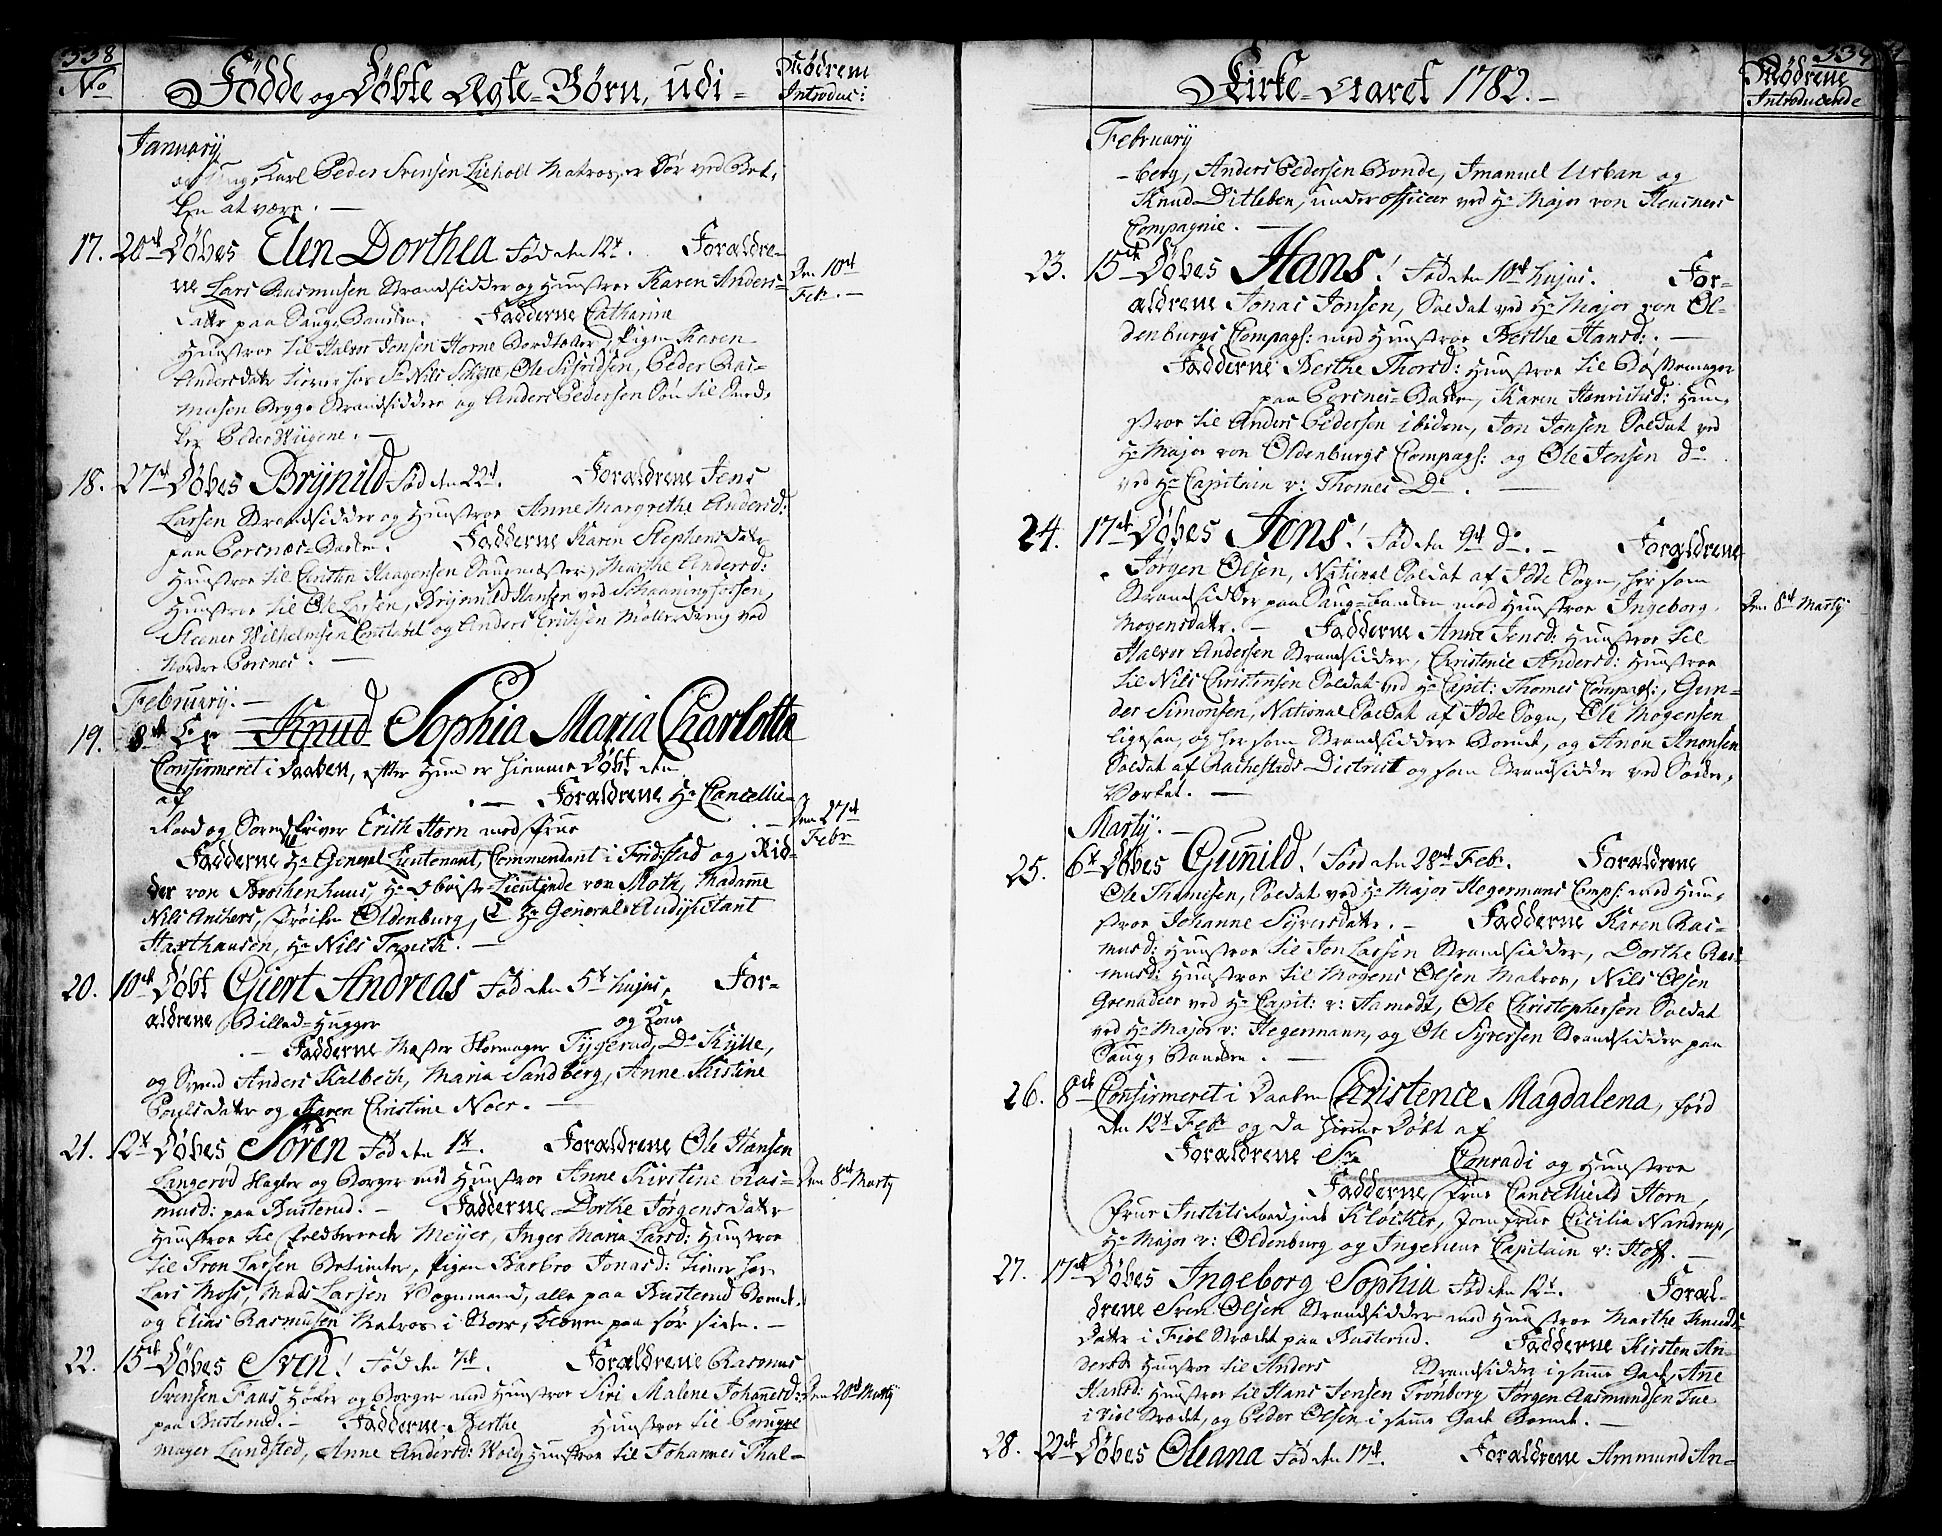 338
No
Födde og Döbte Ægte=Börn, udi=
Mödrene
Introduc:
January
Karl Peder Svensen Lieholt Matros, er Før ved Bot,
len at være. —
17. 20de Döbes Elen Dorthea Föd den 12t. Foraldre-
ne Lars Rasmusen Strandsidder og Hunstroe Karen Anders-
Datter paa Sauge Banden. Fadderne Catharine
Hunstroe til Halvor Jonsen Horne Bordsætter, Pigen Karen
Andersdatr tiener hos Sr Nils Schøne, Ole Sifridsen, Peder Ras-
musen Brygge Strandsiddere og Anders Pedersen Søn til
Peder Wiigene. —
Den 10de
Febr. —
18. 27de Döbes Brÿnild Föd den 22d. Foraldrene Jens
Larsen Strandsidder og Hunstroe Anne Margrethe Andersd:
paa Porsnæs=Banden. Fadderne Karen Stephens datr
Hunstroe til Christen Haagensen Saugmester, Marthe Andersd:
Hunstroe til Ole Larsen, Brÿnild Hansen ved Schaaning fossen,
Steener Wilhelmsen Constabel og Anders Erichsen Møllerdreng ved
Nordre Porsnes. —
February. —
19. 8de Er Knud Sophia Maria Charlotta
Confirmeret i Daaben, efter Hun er hiemme Döbt den
af . — Foraldrene Hr Cancellie-
Raad og Sorenskriver Erich Horn med Frue . —
Fadderne Hr General Lieutenant, Commendant i Fridrstad og Rid-
der von Brochenhuus, Hr Obrist=Lieutinde von Moth, Madame
Nils Ankers, Frøiken Oldenburg, Hr Generals Audijstant
Haxthausen, Hr Nils Tanch. —
Den 27de
Febr
20. 10de Döbt Giert Andreas Föd den 5t hujus. For-
ældrene Billed=Hugger og Kone
. — Fadderne Mester Hormager Tÿgerud, Do Kÿlle,
og Svend Anders Kalbech, Maria Sandberg, Anne Kistine
Povlsdatr og Karen Christine Noer. —
21. 12t Döbes Sören Föd den 1t. Foraldrene Ole Hansen
Langerød Hagler og Borger med Hunstroe Anne Kirstine Ras-
musd: paa Busterud. — Fadderne Dorthe Jørgens datr
Hunstroe til Feldbereder Meÿer, Inger Maria Larsd: Hunstroe
til Tron Larsen Betienter, Pigen Barbro Jonasd: tiener hos
Lars Moss, Mads Larsen Vognmand, alle paa Busterud Boende,
og Elias Rasmusen Matros i paa Sør Siden. —
Den 8de Martÿ
22. 15de Döbes Sven! Föd den 7de. Foraldrene Rasmus
Svensen Faas Høker og Borger med Hunstroe Siri Malene Johannesd:
paa Busterud. — Fadderne Berthe Hunstroe til Peruqve
mager Lundsted, Anne Andersd: Wold, Hunstroe til Johannes Thal-
Den 20de Martÿ
339
Kirke=Aaret 1782. —
Mödrene
Introducende
February
-berg, Anders Pedersen Bonde, Imanuel Urban og
Knud Ditleben, underofficer ved Hr Major von Heusners
Compagnie. —
23. 15de Döbes Hans! Föd den 10de hujus. For-
ældrene Jonas Jonsen, Soldat ved Hr Major von Ol-
denburgs Compags: med Hunstroe Berthe Hansd: . —
Fadderne Berthe Thorsd: Hunstroe til Børstemager
paa Porsnes=Banden, Karen Henrichsd: Hun-
stroe til Anders Pedersen ibidem, Jon Jonsen Soldat ved
Hr Major von Oldenburgs Compags: og Ole Jensen do
ved Hr Capitain v: Thomes Do. —
24. 17de Döbes Jens! Föd den 9de do. — Foraldrene
Jørgen Olsen, National Soldat af Idde Sogn, her som
Strandsidder paa Sauge=banden med Hunstroe Ingeborg
Mogensdatr. — Fadderne Anne Jensd: Hunstroe til
Halvor Andersen Strandsidder, Christence Andersd: Hunstroe
til Nils Christensen Soldat ved Hr Capit: Thomes Compags:, Gun-
der Simonsen, National Soldat af Idde Sogn, Ole Mogensen
ligesaa, og her som Strandsiddere Boende, og Anon Anonsen
Soldat af Rachestads District og som Strandsidder ved Søder,
Værket. —
Den 8de Martÿ
Martÿ. —
25. 6t Döbes Gunild! Född den 28de Febr. Foraldrene
Ole Thomesen, Soldat ved Hr Major Hegermans Comps: med Hun-
stroe Johanne Sÿversdatr. — Fadderne Karen Ras-
musd: Hunstroe til Jon Larsen Strandsidder, Dorthe Ras-
musd: Hunstroe til Mogens Olsen Matros, Nils Olsen
Grenadeer ved Hr Capit: v: Hamedt, Ole Christophersen Soldat
ved Hr Major v: Hegermann, og Ole Sÿversen Strandsidder paa
Sauge Banden. —
26. 8de Confirmeret i Daaben Christence Magdalena, född
den 12t Febr og da hieme Döbt af
Foraldrene Sr Conradi og Hunstroe
Fadderne, Frue Cancellieraad Horn,
Frue Institsraadinde Kløcker, Jomfrue Cicilia Nandrup,
Hr Major v: Oldenburg og Ingenieur Capitain v: Hoff. —
27. 17de Döbes Ingeborg Sophia Föd den 12t. Foral-
drene Sven Olsen Strandsidder med Hunstroe Marthe Knuds
Datr i Fiol Strædet paa Busterud. Fadderne Kirsten An-
dersdr Hunstroe til Anders Strandsidder i samme Gade, Ane
Hansd: Hunstroe til Hans Jensen Trønborg, Jørgen Aasmundsen Tue
i Viol Strædet, og Peder Olsen i samme Gade Boende. —
28. 22de Döbes Oleana Föd den 17de. Foraldrene Ammund An-